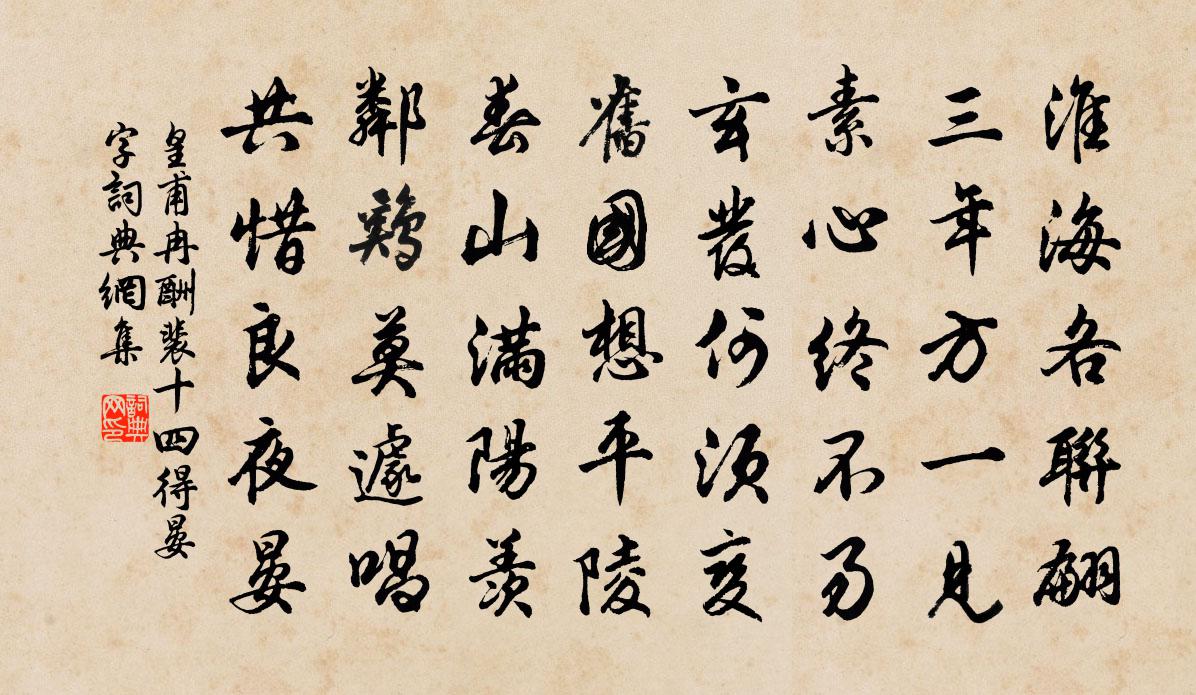 淮海各聯翩
三年方一見
素心終不易
玄發何須變
舊國想平陵
春山滿陽羨
鄰鷄莫遽唱
共惜良夜晏
皇甫冉酬裴十四得晏
字詞典網集
詞典网印